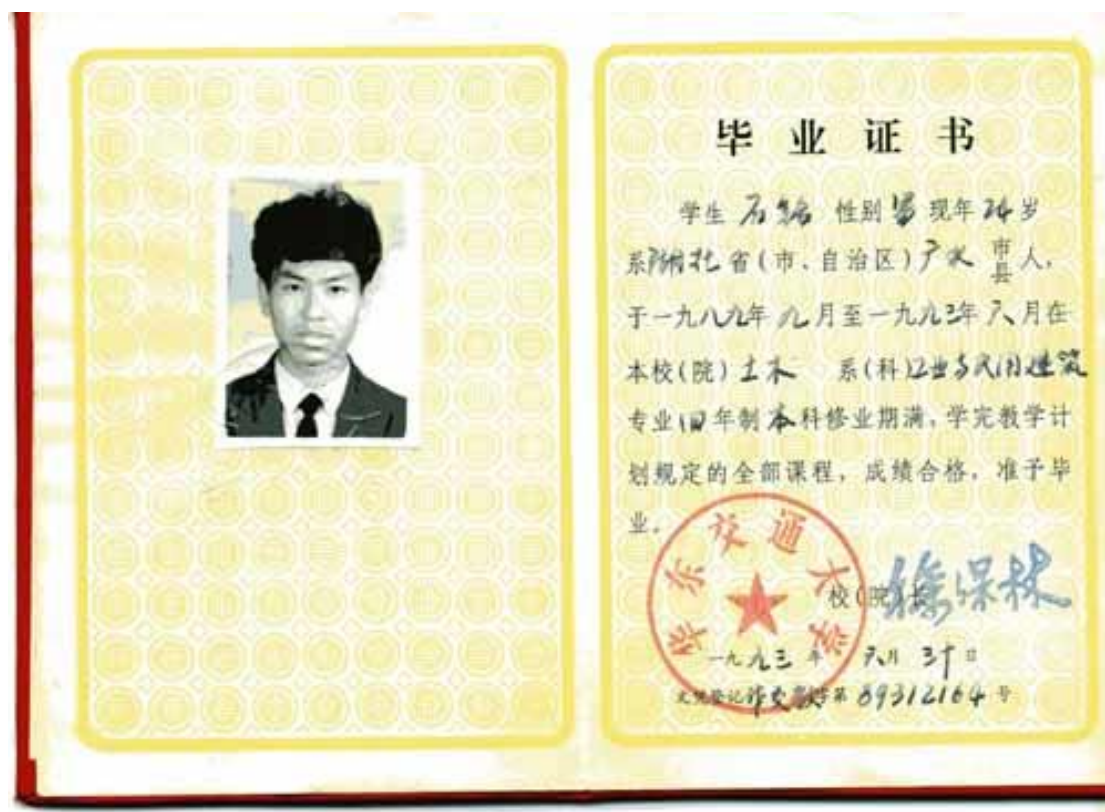 毕业证书
学生 石 性别 男 现年 24 岁
系 湖北 省(市、自治区) 广水 市县 人,
于一九八九年 九 月至一九九三年 六 月在
本校(院) 土木 系(科) 工业与民用建筑
专业 四 年制 本 科修业期满,学完教学计
划规定的全部课程,成绩合格,准予毕
业。
华东交通大学
校(院)长
徐保林
一九九三年 六月 三十日
文凭登记 第 89312164 号